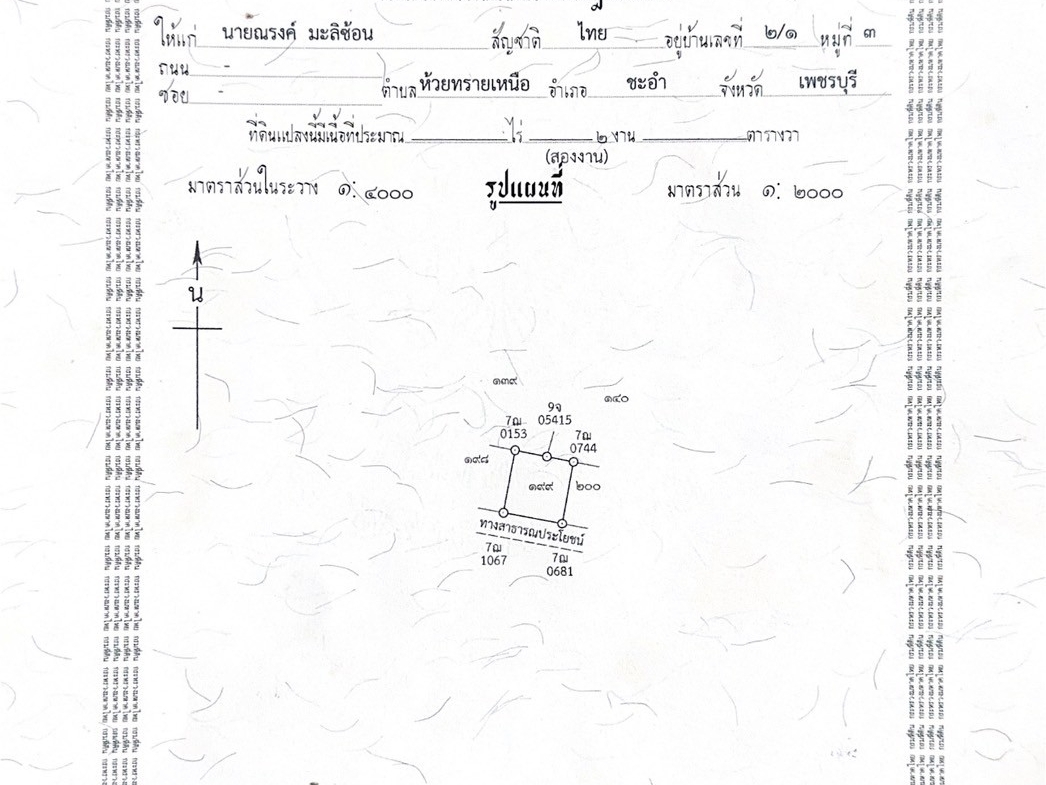 ให้แก่ นายณรงค์ มะลิซ้อน สัญชาติ ไทย อยู่บ้านเลขที่ ๒/๑ หมู่ที่ ๓
ถนน -
ซอย - ตำบล ห้วยทรายเหนือ อำเภอ ชะอำ จังหวัด เพชรบุรี
ที่ดินแปลงนี้มีเนื้อที่ประมาณ ไร่ ๒ งาน ตารางวา
(สองงาน)
มาตราส่วนในระวาง ๑: ๔๐๐๐ รูปแผนที่ มาตราส่วน ๑: ๒๐๐๐
น
๑๓๙
๑๔๐
9จ
05415
7ฌ
0153
7ฌ
0744
๑๙๘
๑๙๙ ๒๐๐
ทางสาธารณประโยชน์
7ฌ
1067
7ฌ
0681